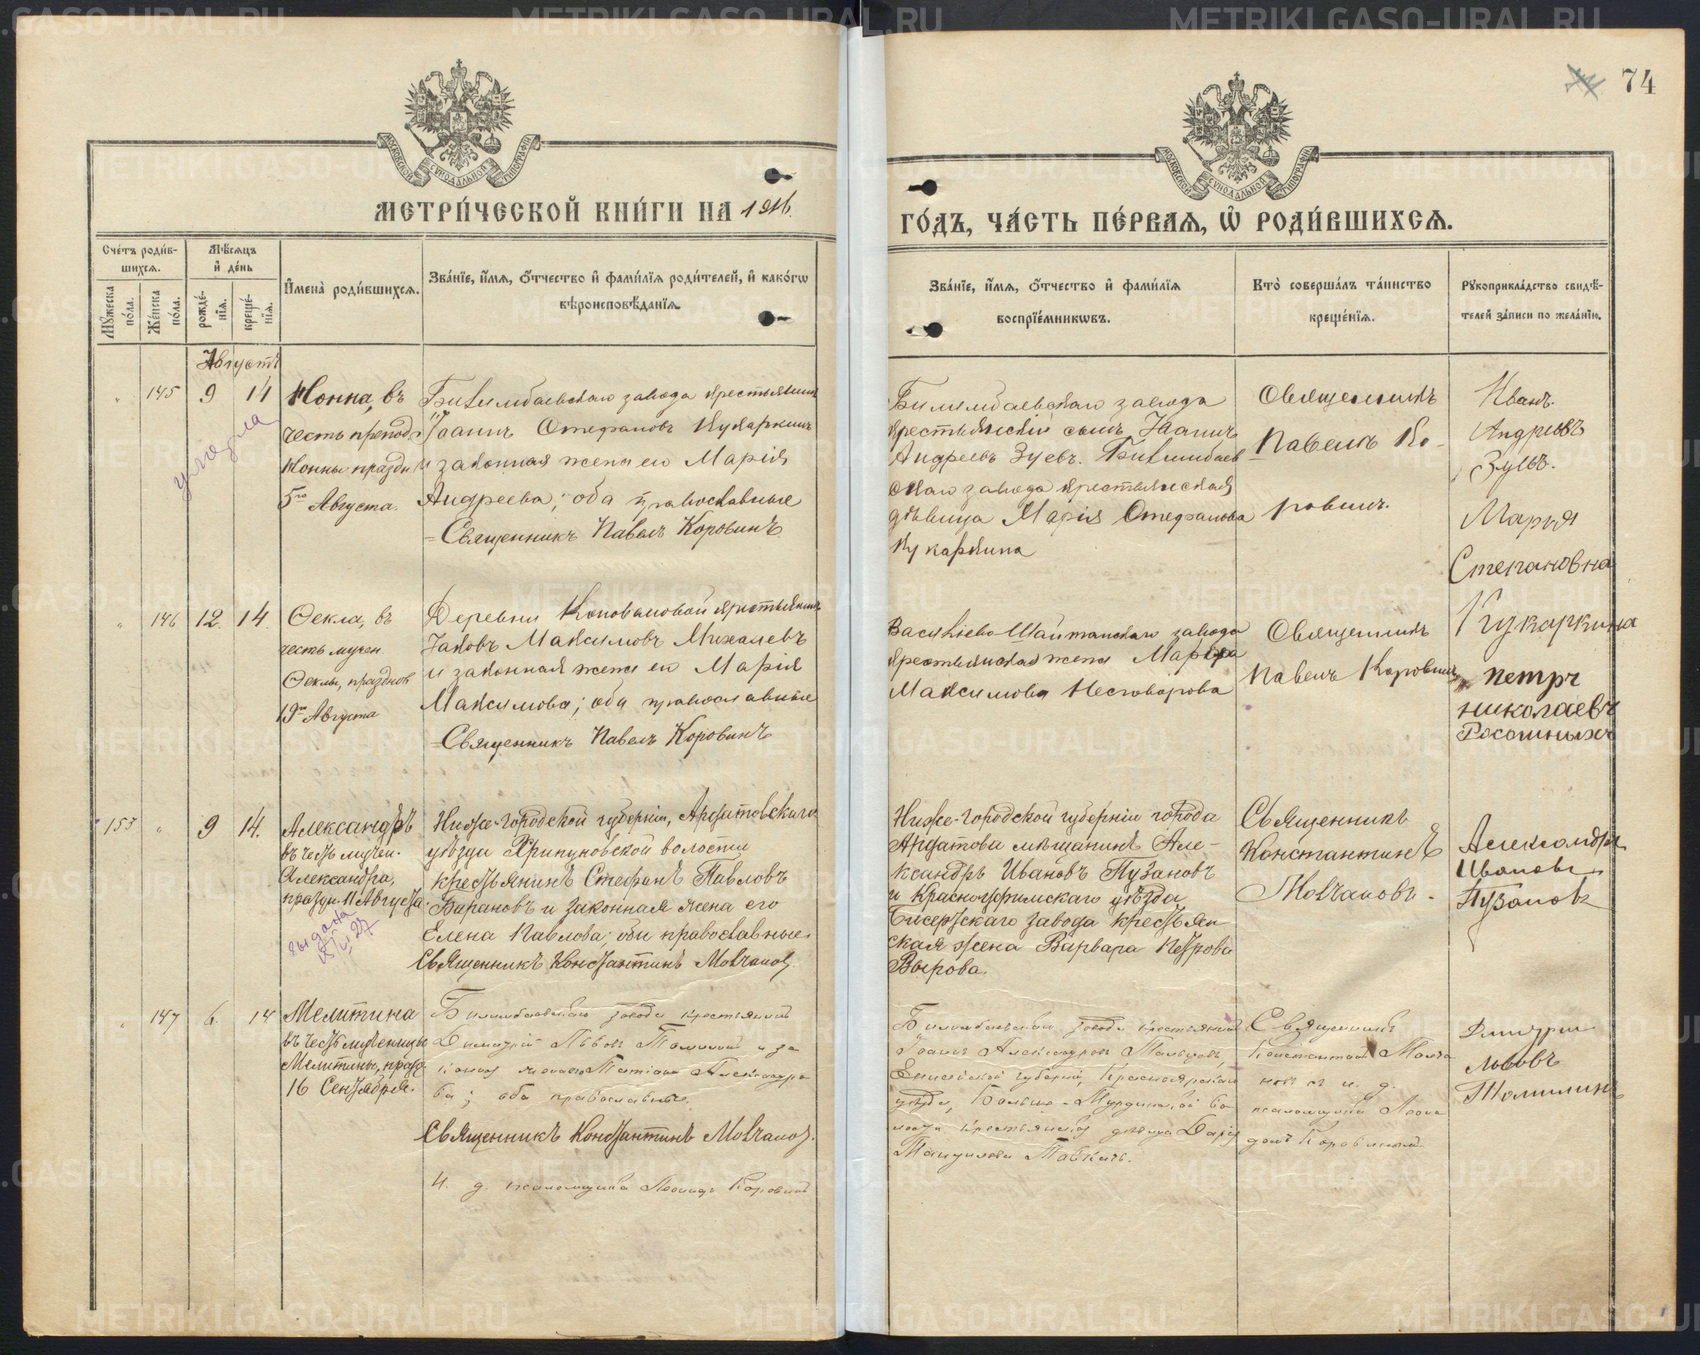 74
МЕТРИ́ЧЕСКОЙ КНИ́ГИ НА 1916.
ГО́ДЪ, ЧА́СТЬ ПЕ́РВАЯ, Ѿ РОДИ́ВШИХСЯ.
Сче́тъ роди́в-
шихся.
Мѣ́сяцъ
и҆ де́нь
И҆мена̀ роди́вшихся.
Зва́нїе, и҆́мя, ѻ҆́тчество и҆ фами́лїя роди́телей, и҆ како́гѡ
вѣроисповѣ́данїя.
Мꙋ́жеска
по́ла.
Же́нска
по́ла.
рожде́-
нїя.
креще́-
нїя.
Зва́нїе, и҆́мя, ѻ҆́тчество и҆ фами́лїя
воспрїе́мникѡвъ.
Кто̀ соверша́лъ та́инство
креще́нїя.
Рꙋкоприкла́дство свидѣ́-
телей за́писи по жела́нїю.
Августъ
145 9 14
Нонна, въ
честь препод.
Нонны праздн
5го Августа.
умерла
Билимбаевскаго завода крестьянинъ
Іоаннъ Стефановъ Кукаркинъ
и законная жена его Марія
Андреева; оба православные
Священникъ Павелъ Коровинъ
Билимбаевскаго завода
крестьянскій сынъ Іоаннъ
Андреевъ Зуевъ. Билимбаев
скаго завода крестьянская
дѣвица Марія Стефанова
Кукаркина
Священникъ
Павелъ Ко-
ровинъ.
Иванъ
Андреевъ
Зуевъ.
Марья
Степановна
Кукаркина
146 12. 14.
Ѳекла, въ
честь мучен
Ѳеклы, празднов
19го Августа
Деревни Коноваловой крестьянинъ
Іаковъ Максимовъ Михалевъ
и законная жена его Марія
Максимова; оба православные
Священникъ Павелъ Коровинъ
Васильево-Шайтанскаго завода
крестьянская жена Марѳа
Максимова Несговорова
Священникъ
Павелъ Коровинъ
Петръ
николаевъ
Росошныхъ
153 " 9 14.
Александръ
въ честь мучен.
Александра,
праздн 11 Августа.
выдана
Ниже-Городской губерніи, Ардатовскаго
уѣзда Хрипуновской волости
крестьянинъ Стефанъ Павловъ
Барановъ и законная жена его
Елена Павлова; оби православные
Священникъ Константинъ Молчановъ.
Ниже-Городской губерніи города
Ардатова мѣщанинъ Але-
ксандръ Ивановъ Пузановъ
и Красноуфимскаго уѣзда
Бисертскаго завода крестьян-
ская жена Варвара Петрова
Вырова.
Священникъ
Константинъ
Молчановъ.
Александръ
Ивановъ
Пузановъ
147 6. 14
Мелитина
въ честь мученицы
Мелитины, празд.
16 Сентября.
Билимбаевскаго завода крестьянинъ
Димитрій Львовъ Томилинъ и за
конная жена его Татіана Александро
ва; оба православные.
Священникъ Константинъ Молчановъ.
И. д. псаломщика Леонидъ Коровинъ
Билимбаевскаго завода крестьянинъ
Іоаннъ Александровъ
Енисейской губерніи, Красноярскаго
уѣзда, Больше-Муртинской во
лости крестьянская дѣвица Дарія
Священникъ
Константинъ Молча
новъ и. д.
псаломщика Леони
домъ Коровинымъ.
Дмитрій
Львовъ
Томилинъ